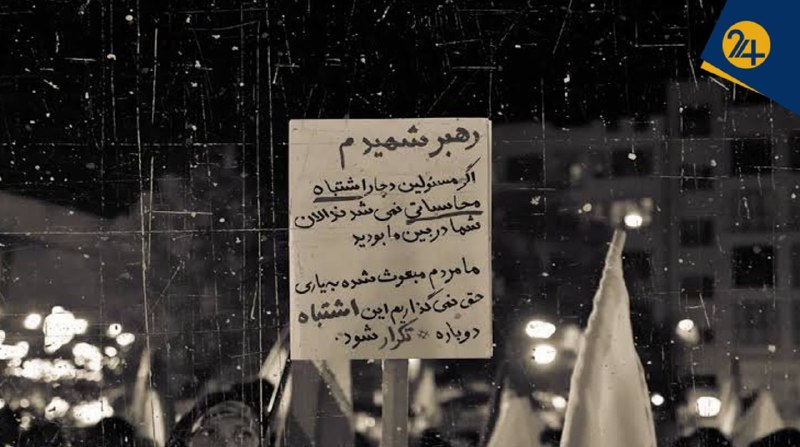 24
رهبر شهیدم
اگر مسئولین دچار اشتباه
محاسباتی نمی شد الان
شما در بین ما بودید
ما مردم مبعوث شده به یاری
حق نمی گذاریم این اشتباه
دوباره تکرار شود.